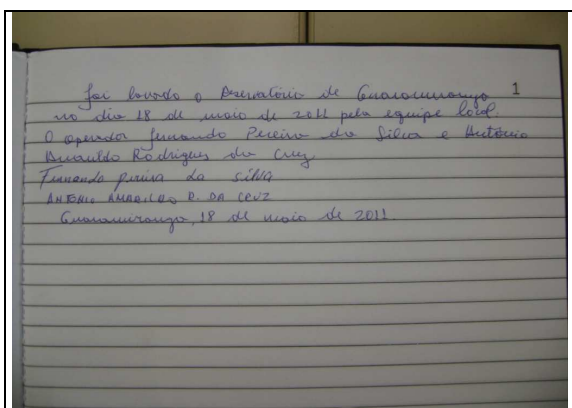 Foi lavado o Reservatório de Guaramiranga 1
no dia 18 de maio de 2011 pela equipe local.
O operador Fernando Pereira da Silva e Antônio
Rodrigues da Cruz
Fernando pereira da silva
ANTONIO R. DA CRUZ
Guaramiranga, 18 de maio de 2011.